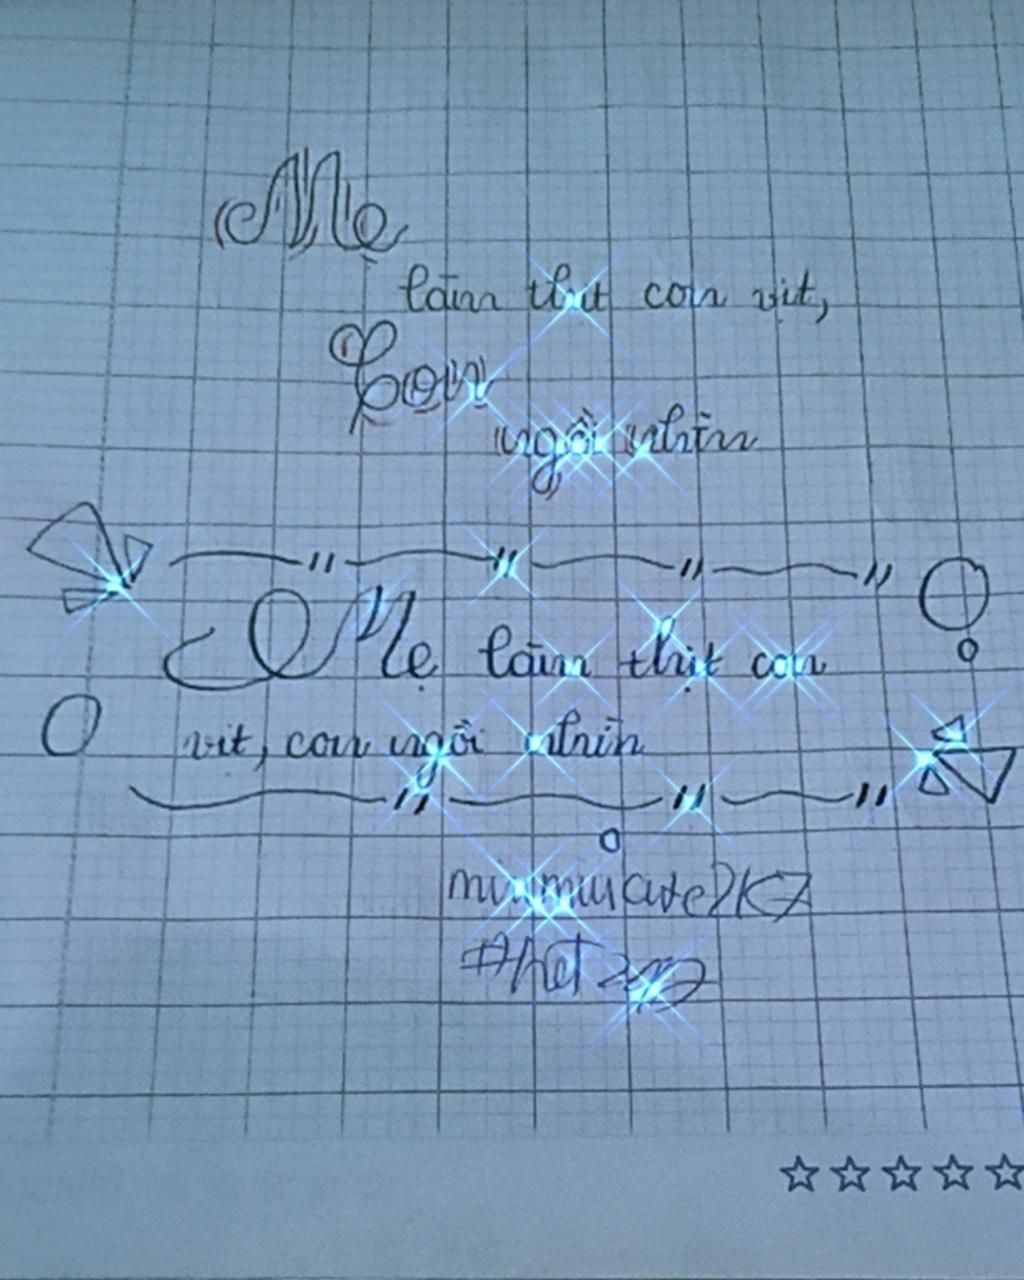 Mẹ
làm thịt con vịt,
Con
ngồi nhìn
Mẹ làm thịt con
vịt, con ngồi nhìn
#het